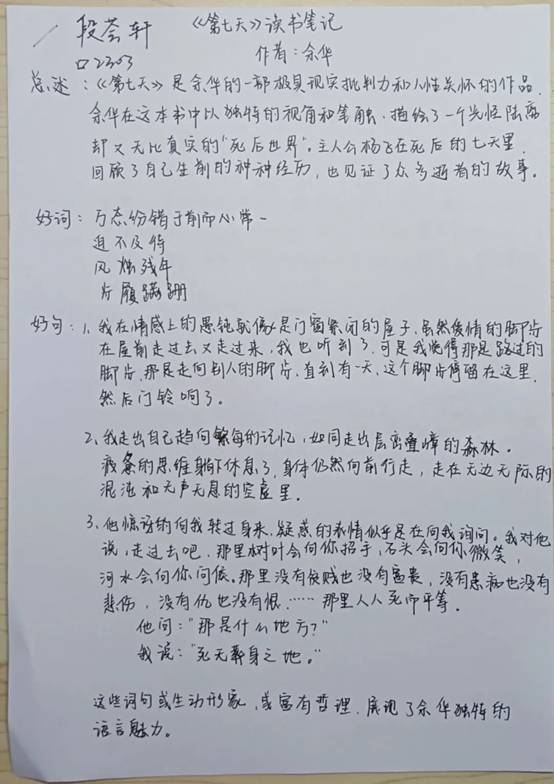 段荟轩
《第七天》读书笔记
口2303
作者：余华
总述：《第七天》是余华的一部极具现实批判力和人性关怀的作品.
余华在这本书中以独特的视角和笔触，描绘了一个光怪陆离
却又无比真实的“死后世界”。主人公杨飞在死后的七天里，
回顾了自己生前的种种经历，也见证了众多逝者的故事。
好词：万态纷错于前而心常一
迫不及待
风烛残年
步履蹒跚
好句：1、我在情感上的愚钝就像是门窗紧闭的屋子，虽然爱情的脚步
在屋前走过去又走过来，我也听到了，可是我觉得那是路过的
脚步，那是走向别人的脚步，直到有一天，这个脚步停留在这里，
然后门铃响了。
2、我走出自己趋向繁多的记忆，如同走出层峦叠嶂的森林。
疲惫的思维躺下休息了，身体仍然向前行走，走在无边无际的
混沌和无声无息的空虚里。
3、他惊讶的向我转过身来，疑惑的表情似乎是在向我询问。我对他
说，走过去吧，那里树叶会向你招手，石头会向你微笑，
河水会向你问候。那里没有贫贱也没有富贵，没有悲
悲伤，没有仇也没有恨……那里人人死而平等。
他问：“那是什么地方？”
我说：“死无葬身之地。”
这些词句或生动形象，或富有哲理，展现了余华独特的
语言魅力。